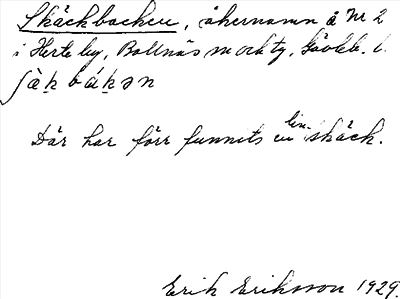 Skäckbacken, åkernamn å Nr 2
i Herte by, Bollnäs sn och tg, Gävleb. l.
ʃὰk̯ bák̯ən
Där har förr funnits en lin-skäck.
Erik Eriksson 1929.